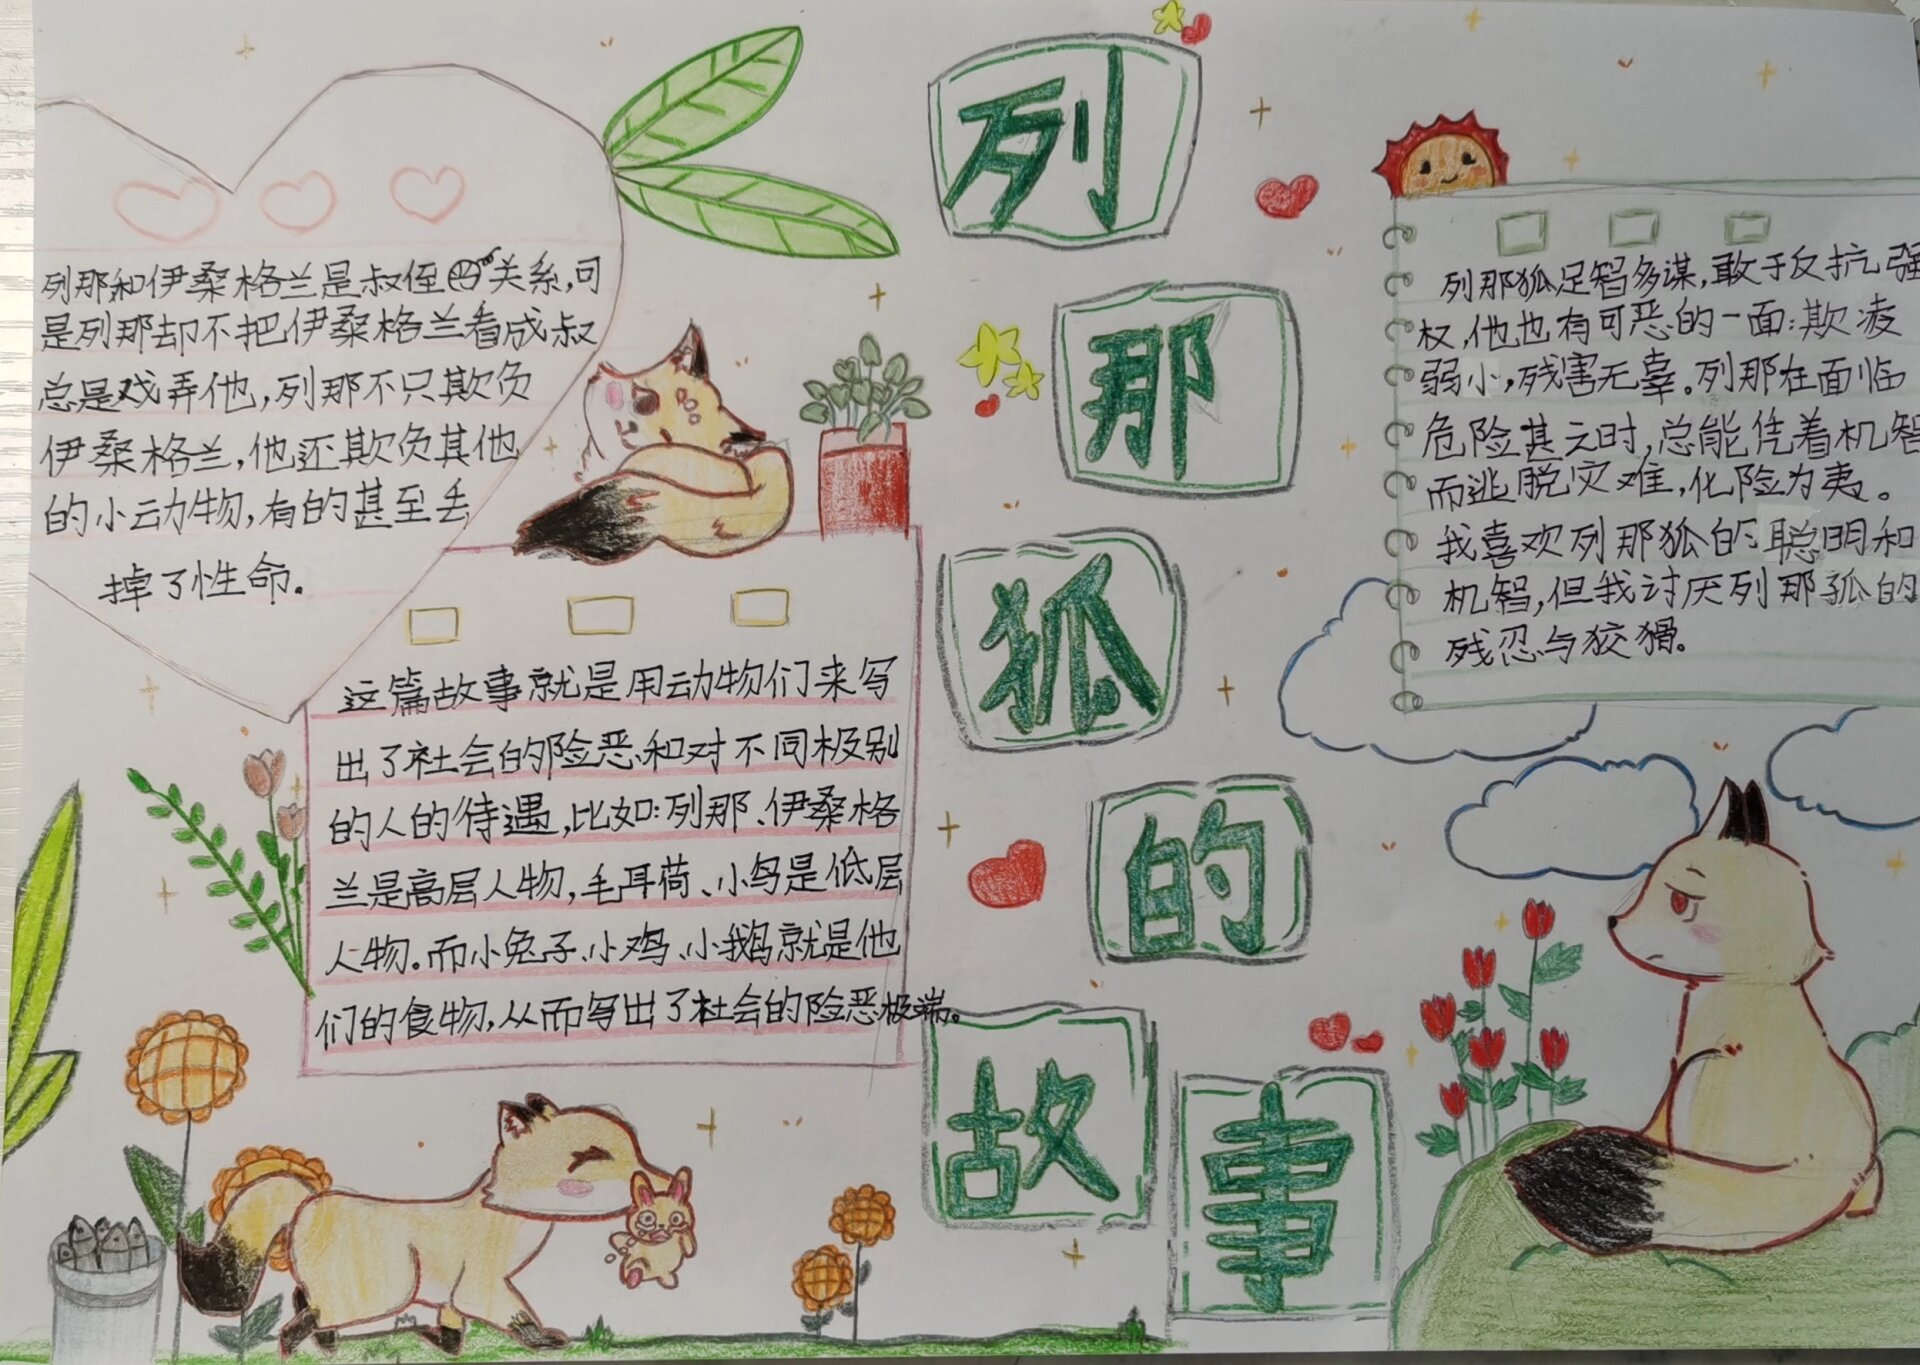 列那狐的故事
列那和伊桑格兰是叔侄关系,可
是列那却不把伊桑格兰看成叔
总是戏弄他,列那不只欺负
伊桑格兰,他还欺负其他
的小动物,有的甚至丢
掉了性命.
这篇故事就是用动物们来写
出了社会的险恶和对不同极别
的人的待遇,比如:列那、伊桑格
兰是高层人物,毛耳荷、小鸟是低层
人物。而小兔子、小鸡、小鹅就是他
们的食物,从而写出了社会的险恶极端。
列那狐足智多谋,敢于反抗强
权,他也有可恶的一面:欺凌
弱小,残害无辜。列那在面临
危险甚之时,总能凭着机智
而逃脱灾难,化险为夷。
我喜欢列那狐的聪明和
机智,但我讨厌列那孤的
残忍与狡猾。